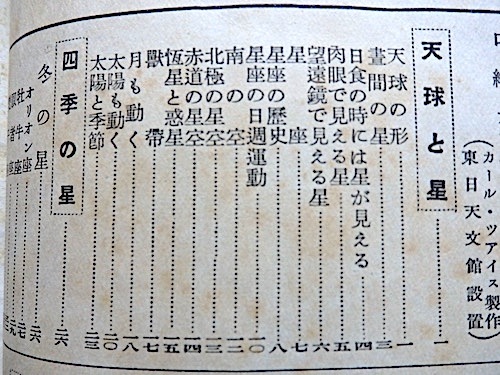 口繪
(カール・ツアイス製作
東日天文館設置)
天球と星……一
天球の形……一
晝間の星……三
日食の時には星が見える……四
肉眼で見える星……五
望遠鏡で見える星……六
星座……七
星座の歷史……八
星座の日週運動……一〇
南の空……一二
北極の星空……一三
赤道の星空……一四
恆星と惑星……一五
獸帶……一七
月も動く……一八
太陽も動く……二〇
太陽と季節……二三
四季の星……二六
冬の星……二六
オリオン座……二七
牡牛座……二九
者座